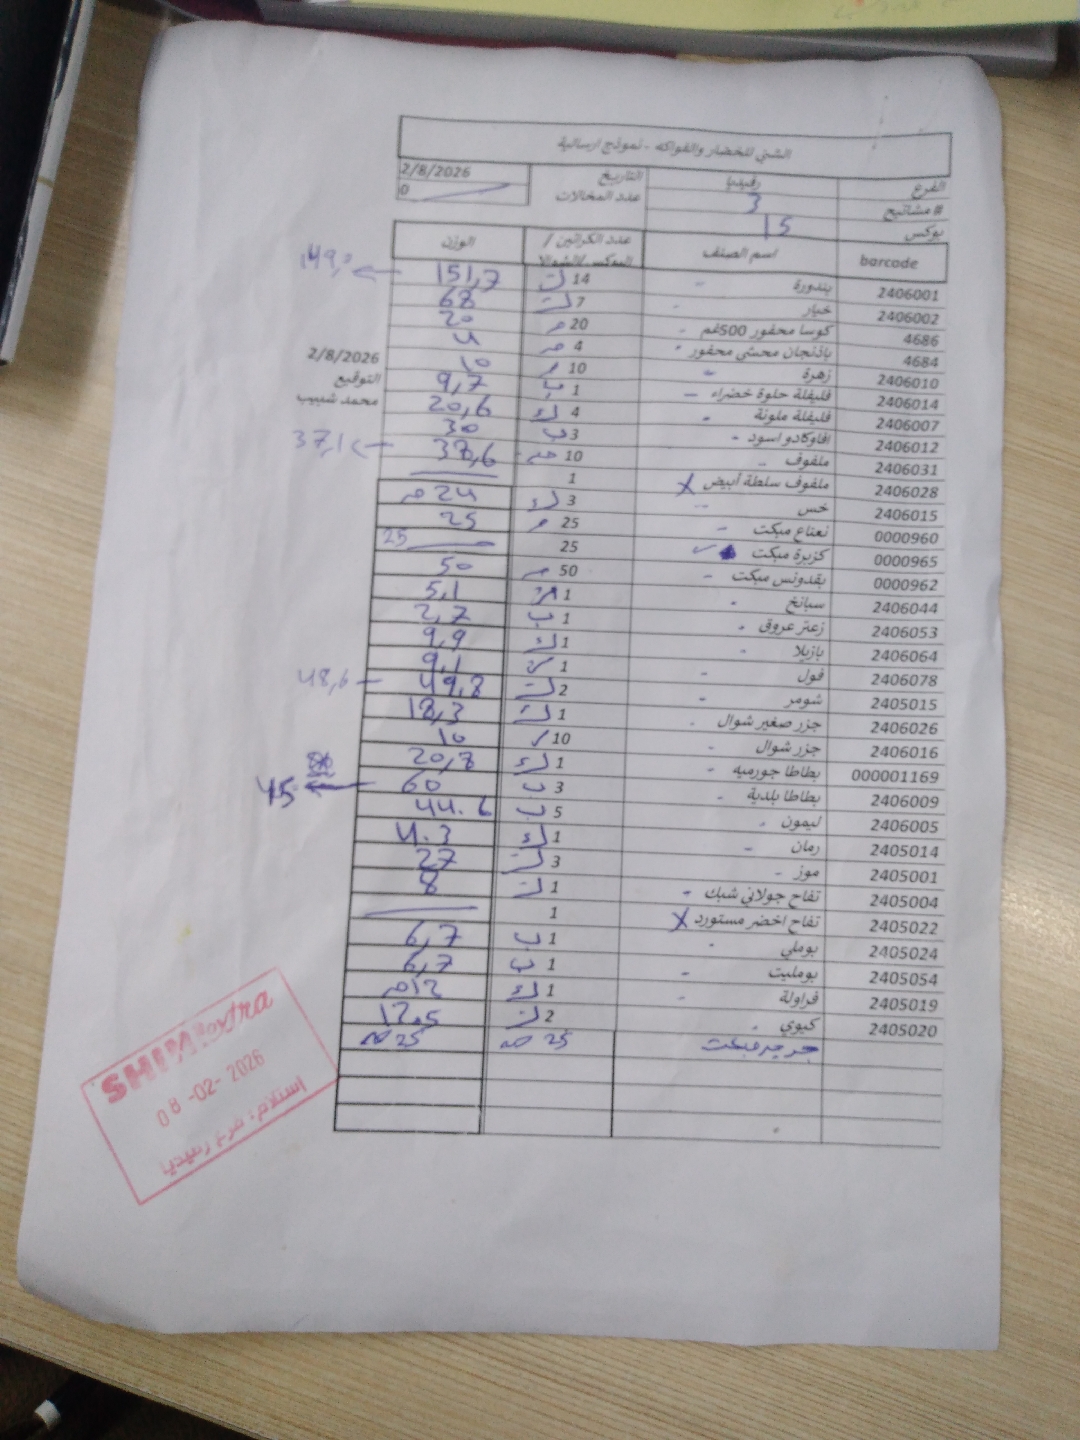 الشني للخضار والفواكه - نموذج ارسالية
الفرع رفيديا التاريخ 2/8/2026
# مشاتيح 3 عدد المخالات 0
بوكس 15
barcode اسم الصنف عدد الكراتين / البوكس/الشوالا الوزن
2406001 بندورة 14 151,7
2406002 خيار 7 68
4686 كوسا محفور 500غم 20 20
4684 باذنجان محشي محفور 4 4
2406010 زهرة 10 10
2406014 فليفلة حلوة خضراء 1 9,7
2406007 فليفلة ملونة 4 20,6
2406012 افاوكادو اسود 3 30
2406031 ملفوف 10 38,6 37,1
2406028 ملفوف سلطة أبيض X 1
2406015 خس 3 24
0000960 نعناع مبكت 25 25
0000965 كزبرة مبكت 25 25
0000962 بقدونس مبكت 50 50
2406044 سبانخ 1 5,1
2406053 زعتر عروق 1 2,7
2406064 بازيلا 1 9,9
2406078 فول 1 9,1
2405015 شومر 2 49,8 48,6
2406026 جزر صغير شوال 1 18,3
2406016 جزر شوال 10 10
000001169 بطاطا جورميه 1 20,8
2406009 بطاطا بلدية 3 60 45
2406005 ليمون 5 44.6
2405014 رمان 1 4.3
2405001 موز 3 27
2405004 تفاح جولاني شبك 1 8
2405022 تفاح اخضر مستورد X 1
2405024 بوملي 1 6,7
2405054 بومليت 1 6,7
2405019 فراولة 1 12
2405020 كيوي 2 12.5
جرجير مبكت 25 25
2/8/2026
التوقيع
محمد شبيب
SHINI extra
08-02-2026
استلام: فرع رفيديا